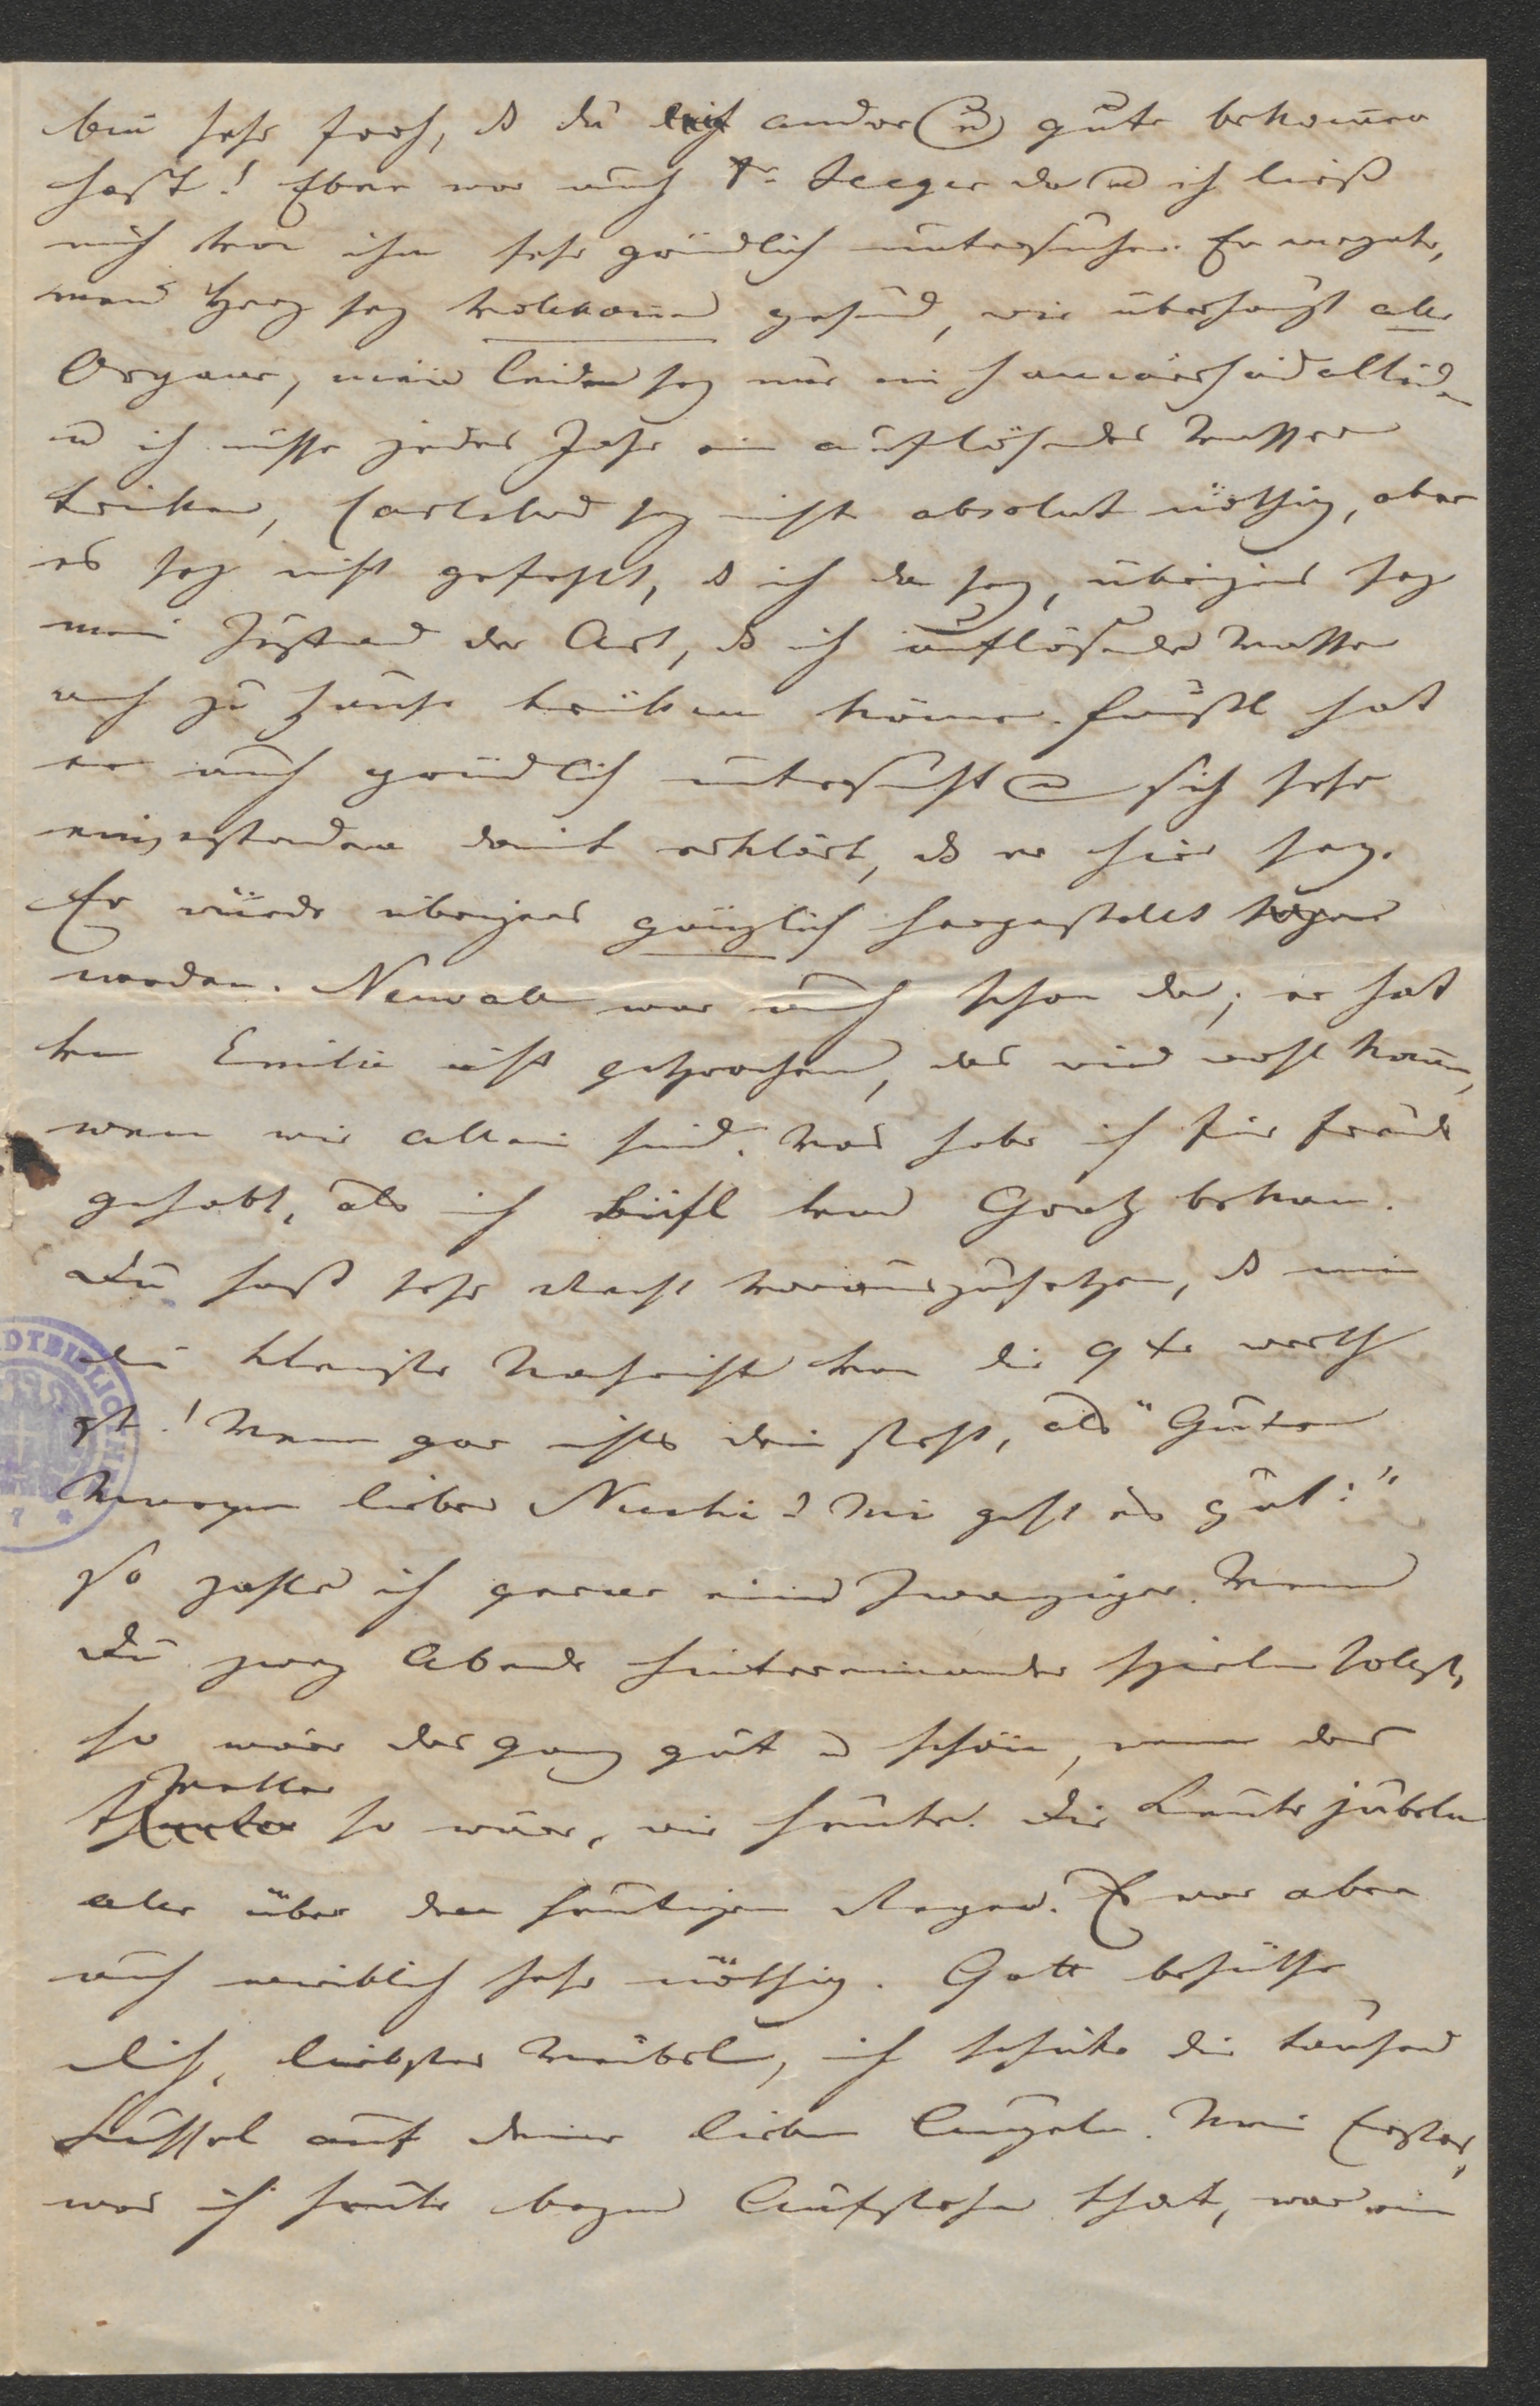 bin sehr froh, dß du andere u gute bekom̅en
hast! Eben war auch Dr Seeger da u ich ließ
mich von ihm sehr gründlich untersuchen. Er meynte,
mein Herz sey vollkom̅en gesund, wie überhaupt alle
Organe, mein Leiden sey nur ein Hämorhoidalleiden
u ich müsse jedes Jahr ein auflösendes Wasser
trinken, Carlsbad sey nicht absolut nöthig, aber
es sey nicht gefehlt, dß ich da sey, übrigens sey
mein Zustand der Art, dß ich auflösendes Wasser
auch zu Hause trinken könne. hat
er auch gründlich untersucht u sich sehr
einverstanden damit erklärt, dß er hier sey.
Er würde übrigens gänzlich hergestellt
werden. Neuwall war auch schon da; er hat
von Emilie nicht gesprochen, das wird wohl kom̅en,
wenn wir allein sind. Was habe ich für Freude
gehabt, als ich von Gratz bekam.
Du hast sehr Recht vorauszusetzen, dß mir
die kleinste Nachricht von dir 9 Xr werth
ist! Wenn gar nichts drin steht, als "Guten
Morgen lieber Nuchi! Mir geht es gut:"
so zahle ich gerne einen Zwanziger. Wenn
Du zwey Abende hintereinander spielen solltest,
so wäre das ganz gut u schön, wenn das
Wetter so wäre, wie heute. Die Leute jubeln
alle über den heutigen Regen. Er war aber
auch wirklich sehr nöthig. Gott behüthe
dich, liebstes Weibel, ich schicke dir tausend
Bussel auf deine lieben Augeln. Mein Erstes,
was ich heute beym Aufstehen that, war ein